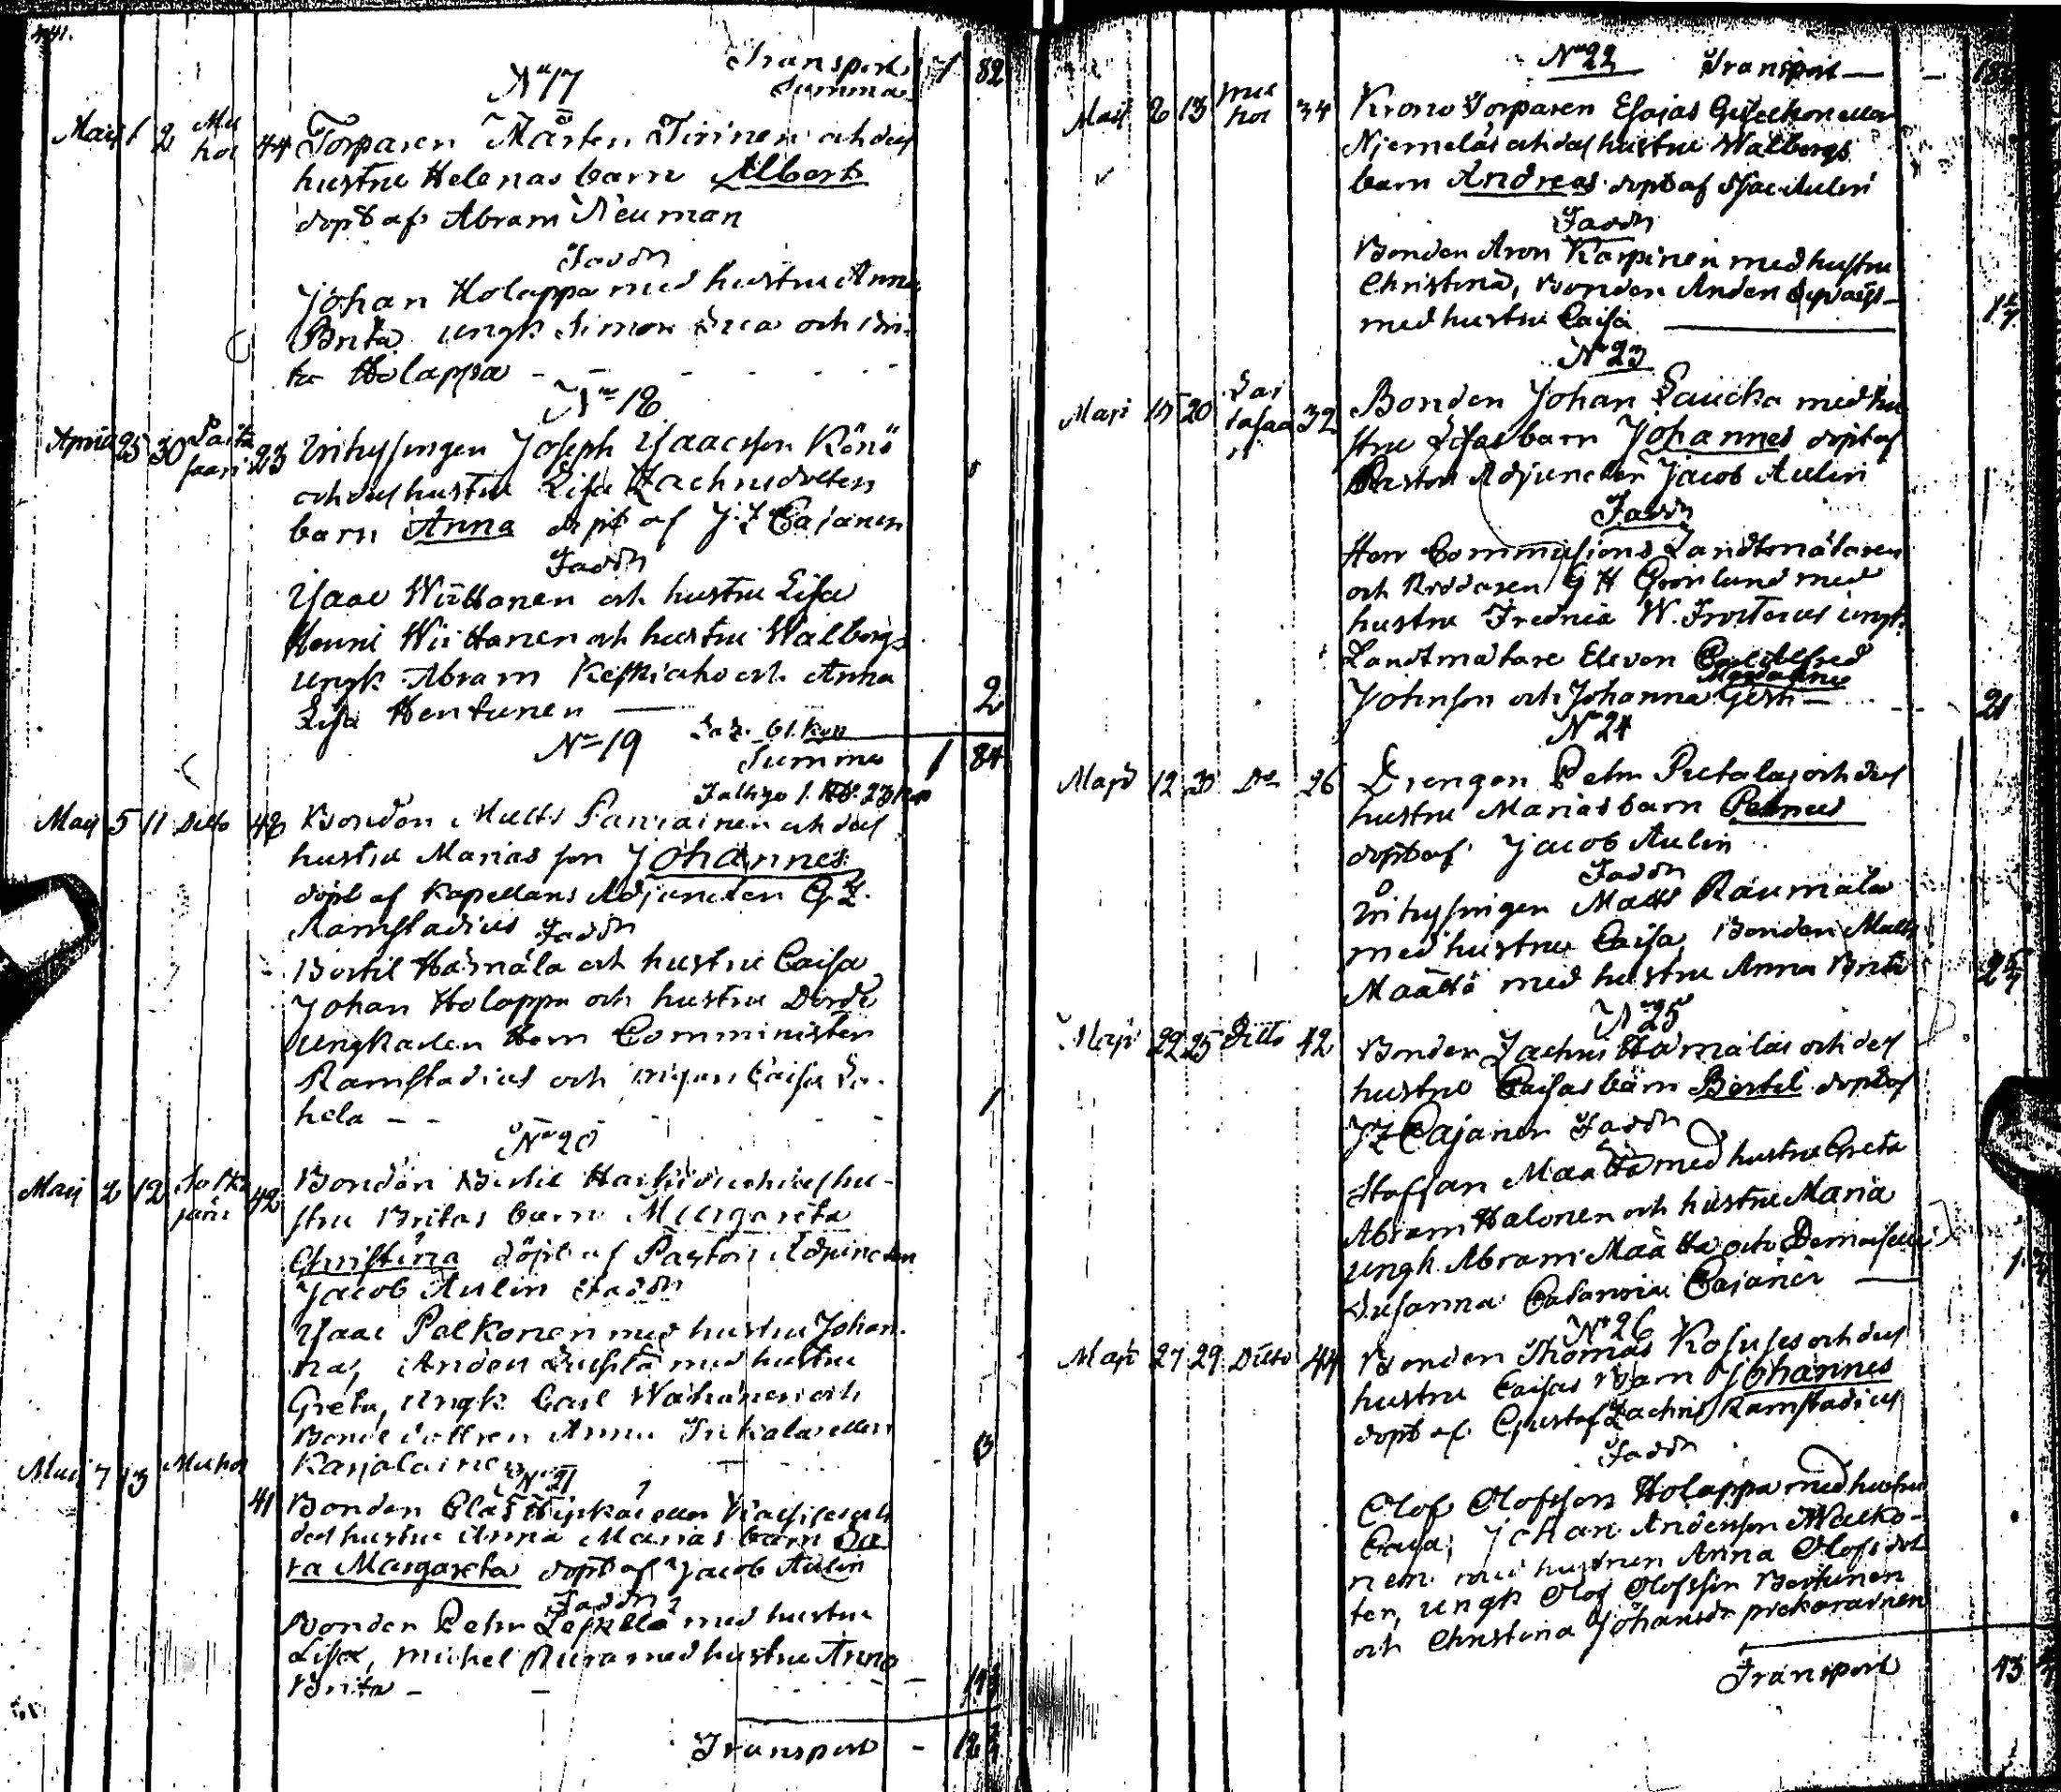 441.
Transport 1 82
Summa
N° 17
Maij 1 2 Mu
hos 44 Torparen Mårten Tirinen och des
hustru Helenas barn Albert
döpt af Abram Neuman
Faddr
Johan Holappa med hustru Anna
Brita ungk Simon och Bri-
ta Holappa - - - -
N° 18
April 25 30 saari 23 Inhysingen Joseph Isaacsson Könö
och des hustru Lisa Zachrisdotters
barn Anna döpt af J. Z Cajanen
Faddr
Isaac Wiittonen och hustru Lisa
Henric Wiittonen och hustru Walborg
ungk Abram Keskiaho och Anna
Lisa Hentunen — 2
N° 19
Summa 1 84
Maij 5 11 Ditto 42 Bonden Matts Parviainen och des
hustru Marias son Johannes
döpt af Kapellans Adjuncten G Z.
Ramstadius Faddr
Bertil Hämälä och hustru Caisa
Johan Holappa och hustru Dorde
ungkarlen Herr Comministern
Ramstadius och pigan Caisa
hela - - 1
N° 20
Maij 2 12 42 Bonden Bertil och des hu-
stru Britas barn Margareta
Christina döpt af Pastors Adjuncten
Jacob Aulin Faddr
Isaac Palkonen med hustru Johan-
na, Anders med hustru
Greta, ungk Carl Wähänen och
Bonde dottren Anna eller
Karjalainen
N° 21
Maij 7 13 Muhos
41 Bonden Clas eller och
des hustru Anna Marias barn Sa
ra Margareta döpt af Jacob Aulin
Faddr
Bonden Pehr Leskelä med hustru
Lisa, Michel med hustru Anna
Brita -
Transport -
N° 22 Transport —
Maij 6 13 Mu
hos 34 Krono Torparen Esajas eller
Niemeläs och des hustru Walborgs
barn Andreas döpt af Jac Aulin
Faddr
Bonden Aron Karpinen med hustru
Christina, Bonden Anders
med hustru Caisa
N° 23
Maji 15 20 32 Bonden Johan Laucka med hu
stru Lisas barn Johannes döpt af
Pastors Adjuncten Jacob Aulin
Faddr
Herr Commissions Landtmätaren
och Riddaren G H Grönlund med
hustru Fredrica W. Frosterus ungk.
Landtmätare Eleven Carl Alfred
Johnson och Johanna — 21
N° 24
Maji 12 20 D° 26 Drengen Pehr Pietalas och des
hustru Marias barn Petrus
döpt af Jacob Aulin
Faddr
Inhysingen Matts Raumala
med hustru Caisa, Bonden Matts
Määttä med hustru Anna Brita
N° 25
Maji 22 25 Ditto 42 Bonden Zachris Hämäläs och des
hustru Caisas barn Bertil döpt af
J Z Cajanen Faddr
Staffan Määttä med hustru Greta
Abram Halonen och hustru Maria
ungk. Abram Määttä och Demoiselle
Susanna Catarina Cajaner —
N° 26
Maji 27 29 Ditto 44 Bonden Thomas och des
hustru Caisas barn Johannes
döpt af Gustaf Zachris Ramstadius
Faddr
Olof Olofsson Holappa med hustru
Caisa, Johan Andersson Walko-
nen med hustrun Anna Olofsdot
ter, ungk Olof Olofsson
och Christina Johansdr
Transport 43